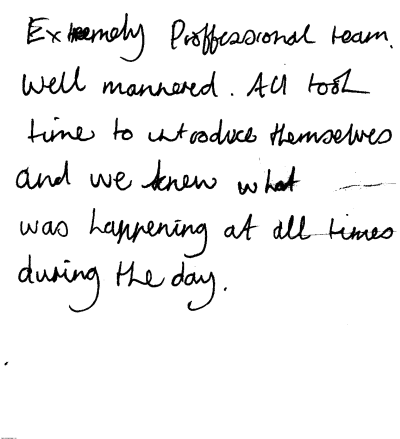 Extremely Proffessional team.
Well mannered. All took
time to introduce themselves
and we knew what
was happening at all times
during the day.